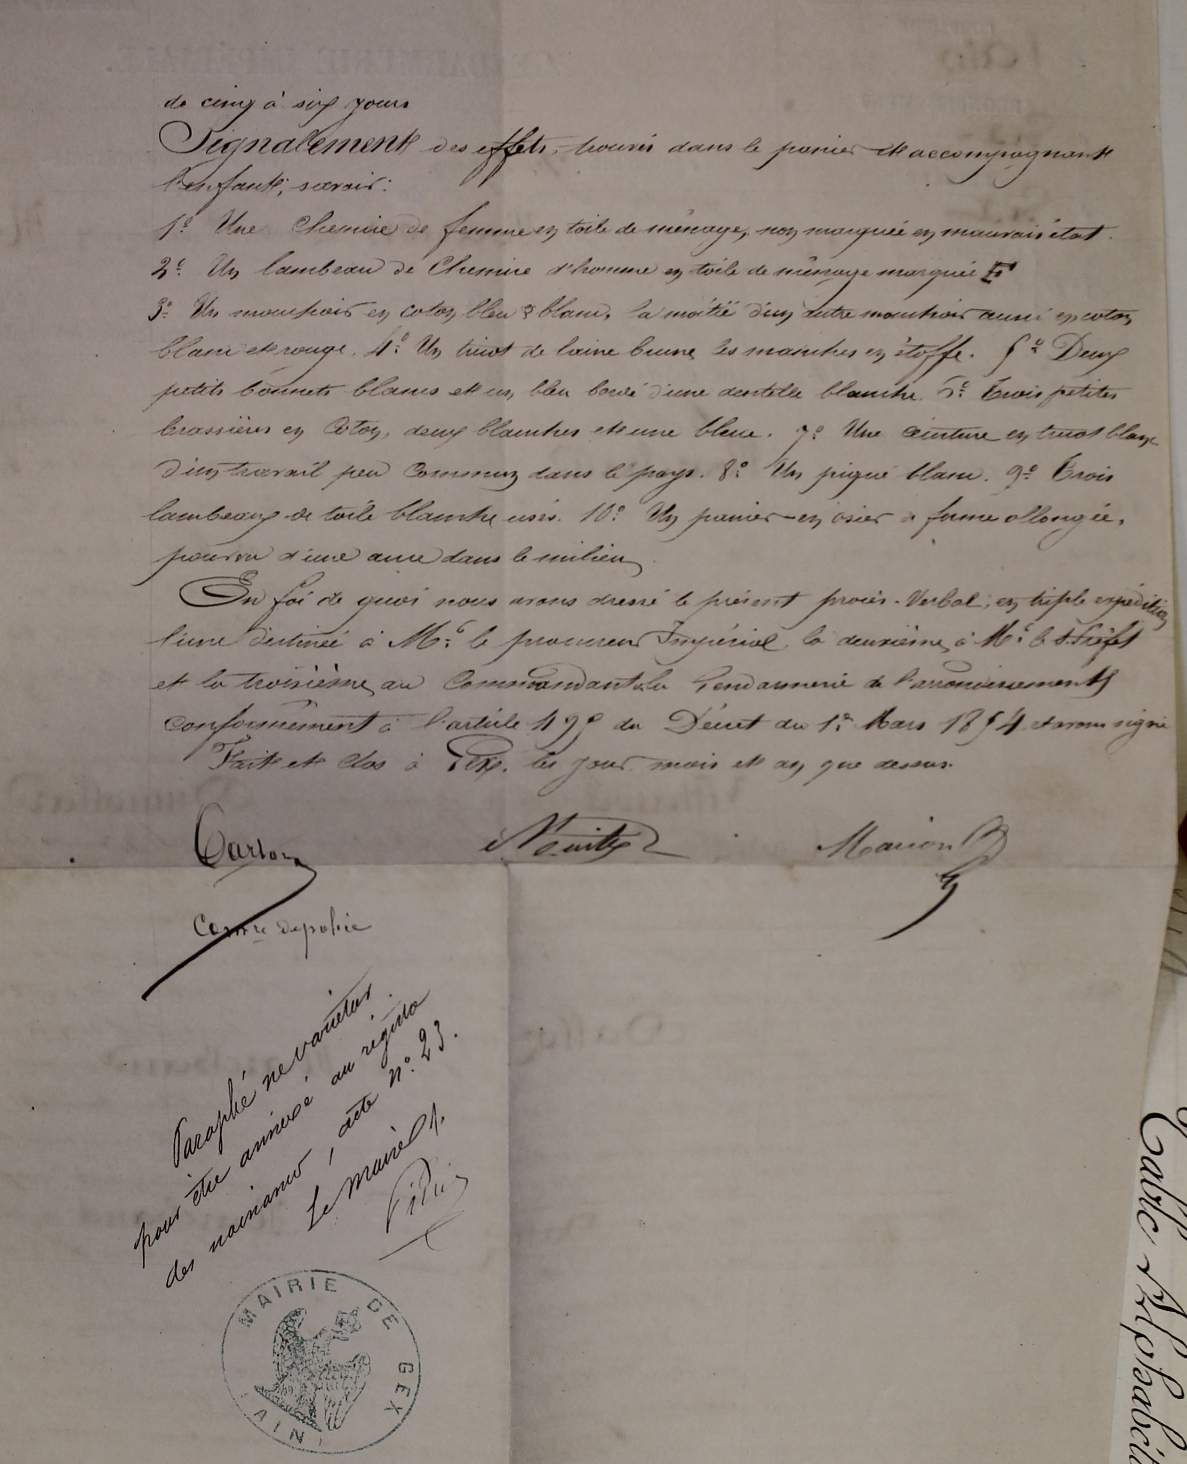 de cinq à six jours
Signalement des effets, trouvés dans le panier et accompagnant
l'enfant; savoir:
1º Une Chemise de femme en toile de ménage, non marquée en mauvais état.
2º Un lambeau de Chemise d'homme en toile de ménage marquée F
3º Un mouchoir en coton bleu & blanc, la moitié d'un autre mouchoir aussi en coton
blanc et rouge. 4º Un tricot de laine brune les manches en étoffe. 5º Deux
petits bonnets blancs et un bleu bordé d'une dentelle blanche. 6º Trois petites
brassières en Coton, deux blanches et une bleue. 7º Une ceinture en tricot blanc
d'un travail peu Commun dans le pays. 8º Un piqué blanc. 9º Trois
lambeaux de toile blanche usés. 10º Un panier en osier à forme allongée,
pourvu d'une anse dans le milieu
En foi de quoi nous avons dressé le présent procès-Verbal, en triple expédition
l'une destinée à Mr. le procureur Impérial, la deuxième, à Mr. le S. Préfet
et la troisième, au Commandant de la Gendarmerie de l'arrondissement
conformément à l'article 495 du Décret du 1er Mars 1854 et avons signé
Fait et clos à Gex. les jour mois et an que dessus.
Marion
Comre de police
Paraphé ne varietur
pour être annexé au registre
des naissances, acte nº 23.
Le Maire
MAIRIE DE GEX
(AIN)
Table Alphabét